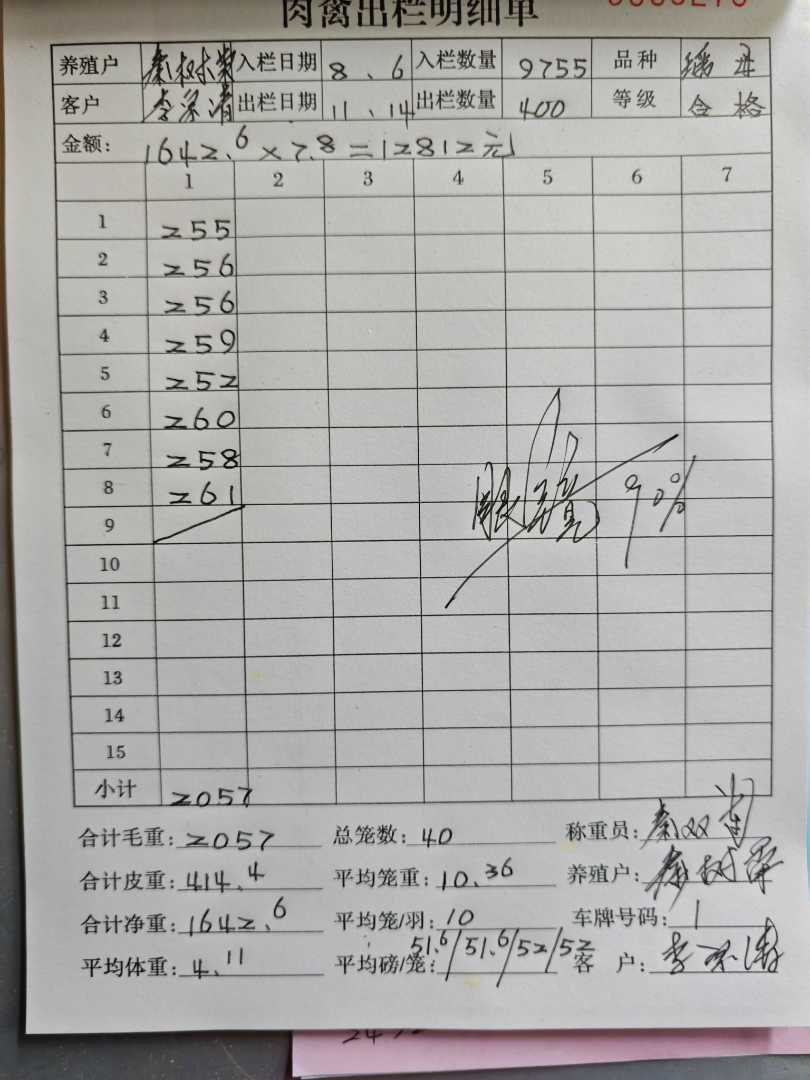 肉禽出栏明细单
养殖户 秦树荣 入栏日期 8、6 入栏数量 9755 品种 瑶母
客户 李 清 出栏日期 11、14 出栏数量 400 等级 合格
金额: 1642.6×7.8=12812元
1 2 3 4 5 6 7
1 255
2 256
3 256
4 259
5 252
6 260
7 258
8 261
9
眼 亮 90%
10
11
12
13
14
15
小计 2057
合计毛重: 2057 总笼数: 40 称重员: 秦双
合计皮重: 414.4 平均笼重: 10.36 养殖户: 秦树荣
合计净重: 1642.6 平均笼/羽: 10 车牌号码: 1
平均体重: 4.11 平均磅/笼: 51.6/51.6/52/52 客 户: 李